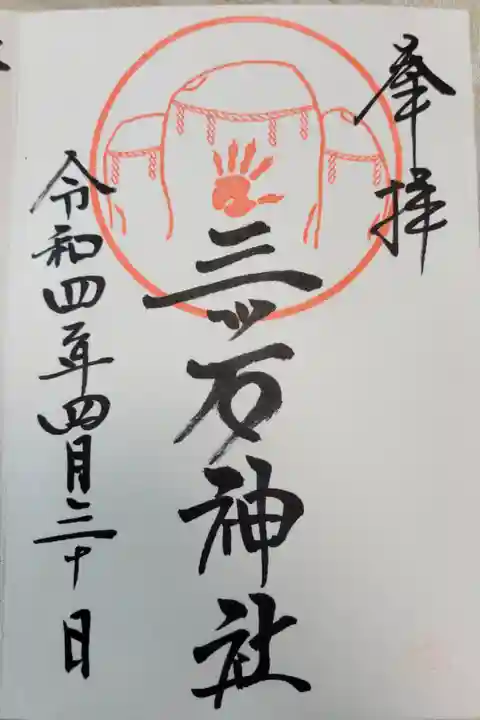 奉拝
三ッ石神社
令和四年四月三十日